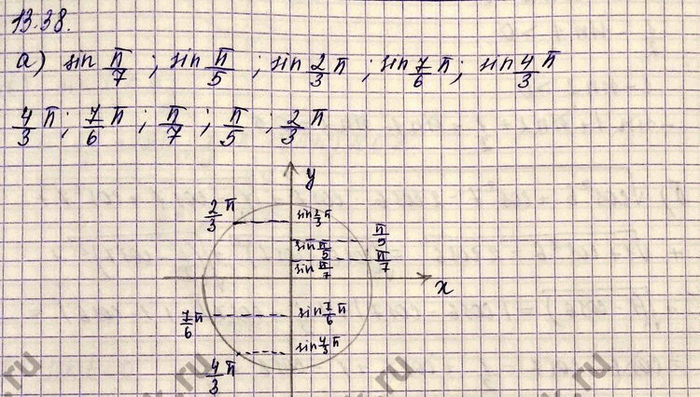 13.38.
а) sin π/7 ; sin π/5 ; sin 2/3 π ; sin 7/6 π ; sin 4/3 π
4/3 π ; 7/6 π ; π/7 ; π/5 ; 2/3 π
y
2/3 π sin 2/3 π
sin π/5 π/5
sin π/7 π/7
x
7/6 π sin 7/6 π
sin 4/3 π
4/3 π
.ru
.ru